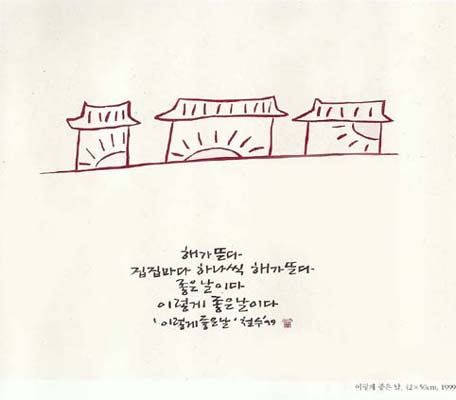 해가 뜬다
집집마다 하나씩 해가 뜬다
좋은날이다
이렇게 좋은날이다
'이렇게좋은날' 철수'99
이렇게 좋은 날, 42×50cm, 1999